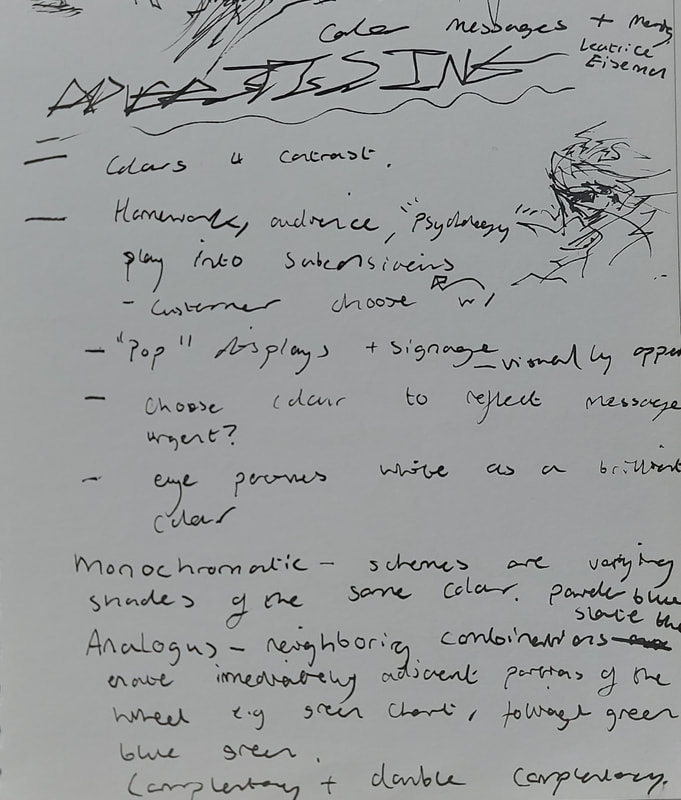 Color messages +
Leatrice
Eiseman
ADVERTISING
Colours & contrast.
Homework, audience, "psychology"
play into subconsiveins
- Customer choose w/
- "Pop" displays + signage - visually
- choose colour to reflect message
urgent?
- eye percieves white as a brilliant
colour
Monochromatic - schemes are varying
shades of the same colour. powder blue
slate blue
Analogus - neighboring combinations
imediately adjacent portions of the
wheel e.g green chart, foliage green
blue green.
Complentary + double complentary.